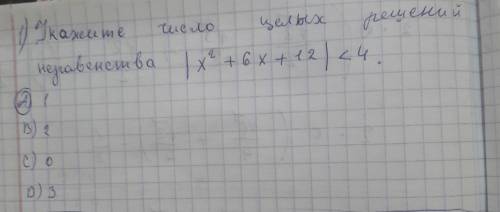 1) Укажите число целых решений
неравенства |x² + 6x + 12| < 4.
A) 1
B) 2
C) 0
D) 3